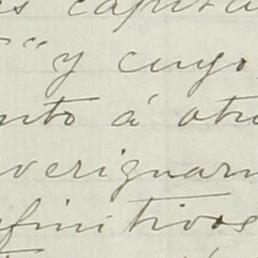 s capita
" y cuyo
nto á otr
veriguar
finitivos